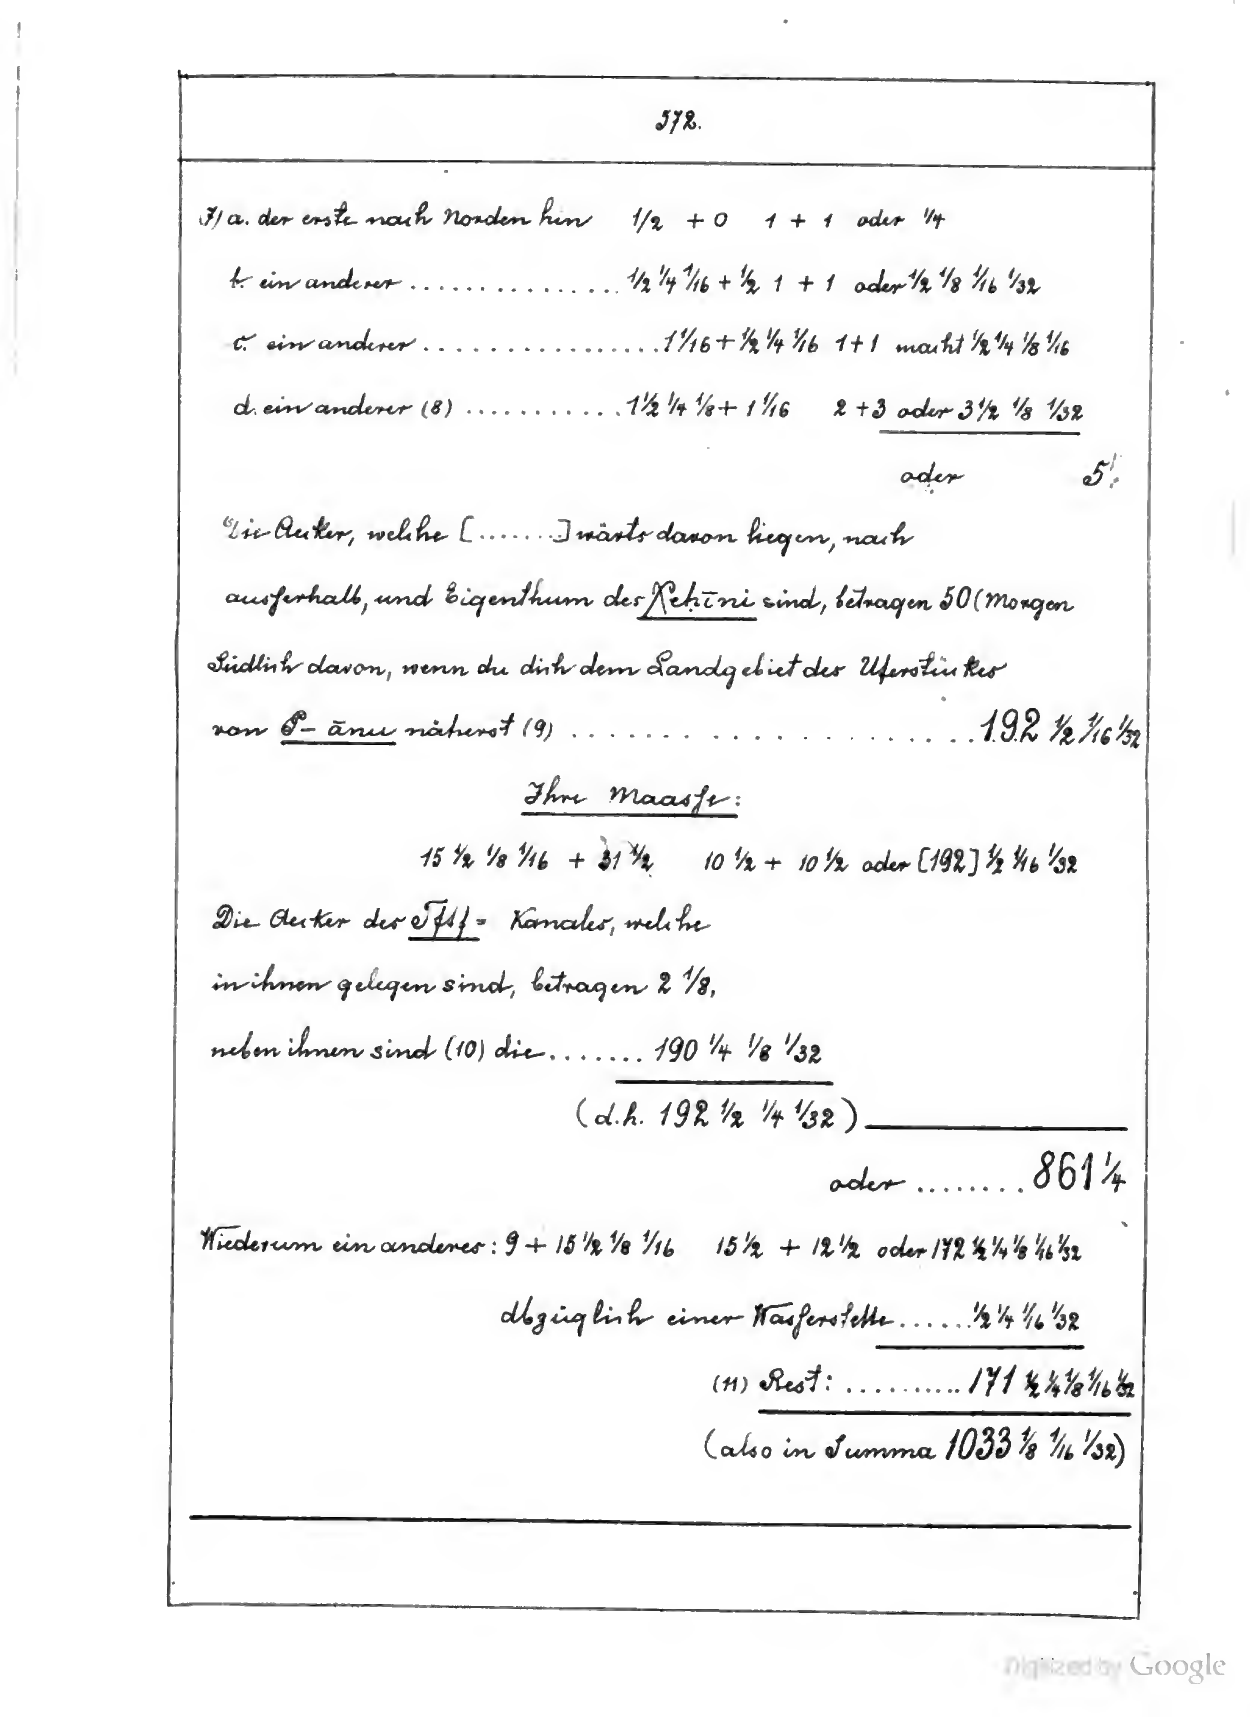 572.
I) a. der erste nach Norden hin 1/2 + 0 1 + 1 oder 1/4
b. ein anderer ............... 1/2 1/4 1/16 + 1/2 1 + 1 oder 1/2 1/8 1/16 1/32
c. ein anderer ................. 1 1/16 + 1/2 1/4 1/16 1+1 macht 1/2 1/4 1/8 1/16
d. ein anderer (8) ........... 1 1/2 1/4 1/8 + 1 1/16 2 + 3 oder 3 1/2 1/8 1/32
oder 5
Die Aecker, welche [.......] wärts davon liegen, nach
ausserhalb, und Eigenthum des Neḥīni sind, betragen 50 (Morgen
Südlich davon, wenn du dich dem Landgebiet des Uferstückes
von P-ānu näherst (9) .................... 192 1/2 1/16 1/32
Ihre Maasse:
15 1/2 1/8 1/16 + 31 1/2 10 1/2 + 10 1/2 oder [192] 1/2 1/16 1/32
Die Aecker des = Kanales, welche
in ihnen gelegen sind, betragen 2 1/8,
neben ihnen sind (10) die ....... 190 1/4 1/8 1/32
(d.h. 192 1/2 1/4 1/32)
oder ........ 861 1/4
Wiederum ein anderes: 9 + 15 1/2 1/8 1/16 15 1/2 + 12 1/2 oder 172 1/2 1/4 1/8 1/16 1/32
Abzüglich einer Wasserstelle ...... 1/2 1/4 1/16 1/32
(11) Rest: .......... 171 1/2 1/4 1/8 1/16 1/32
(also in Summa 1033 1/8 1/16 1/32)
Digitized by Google